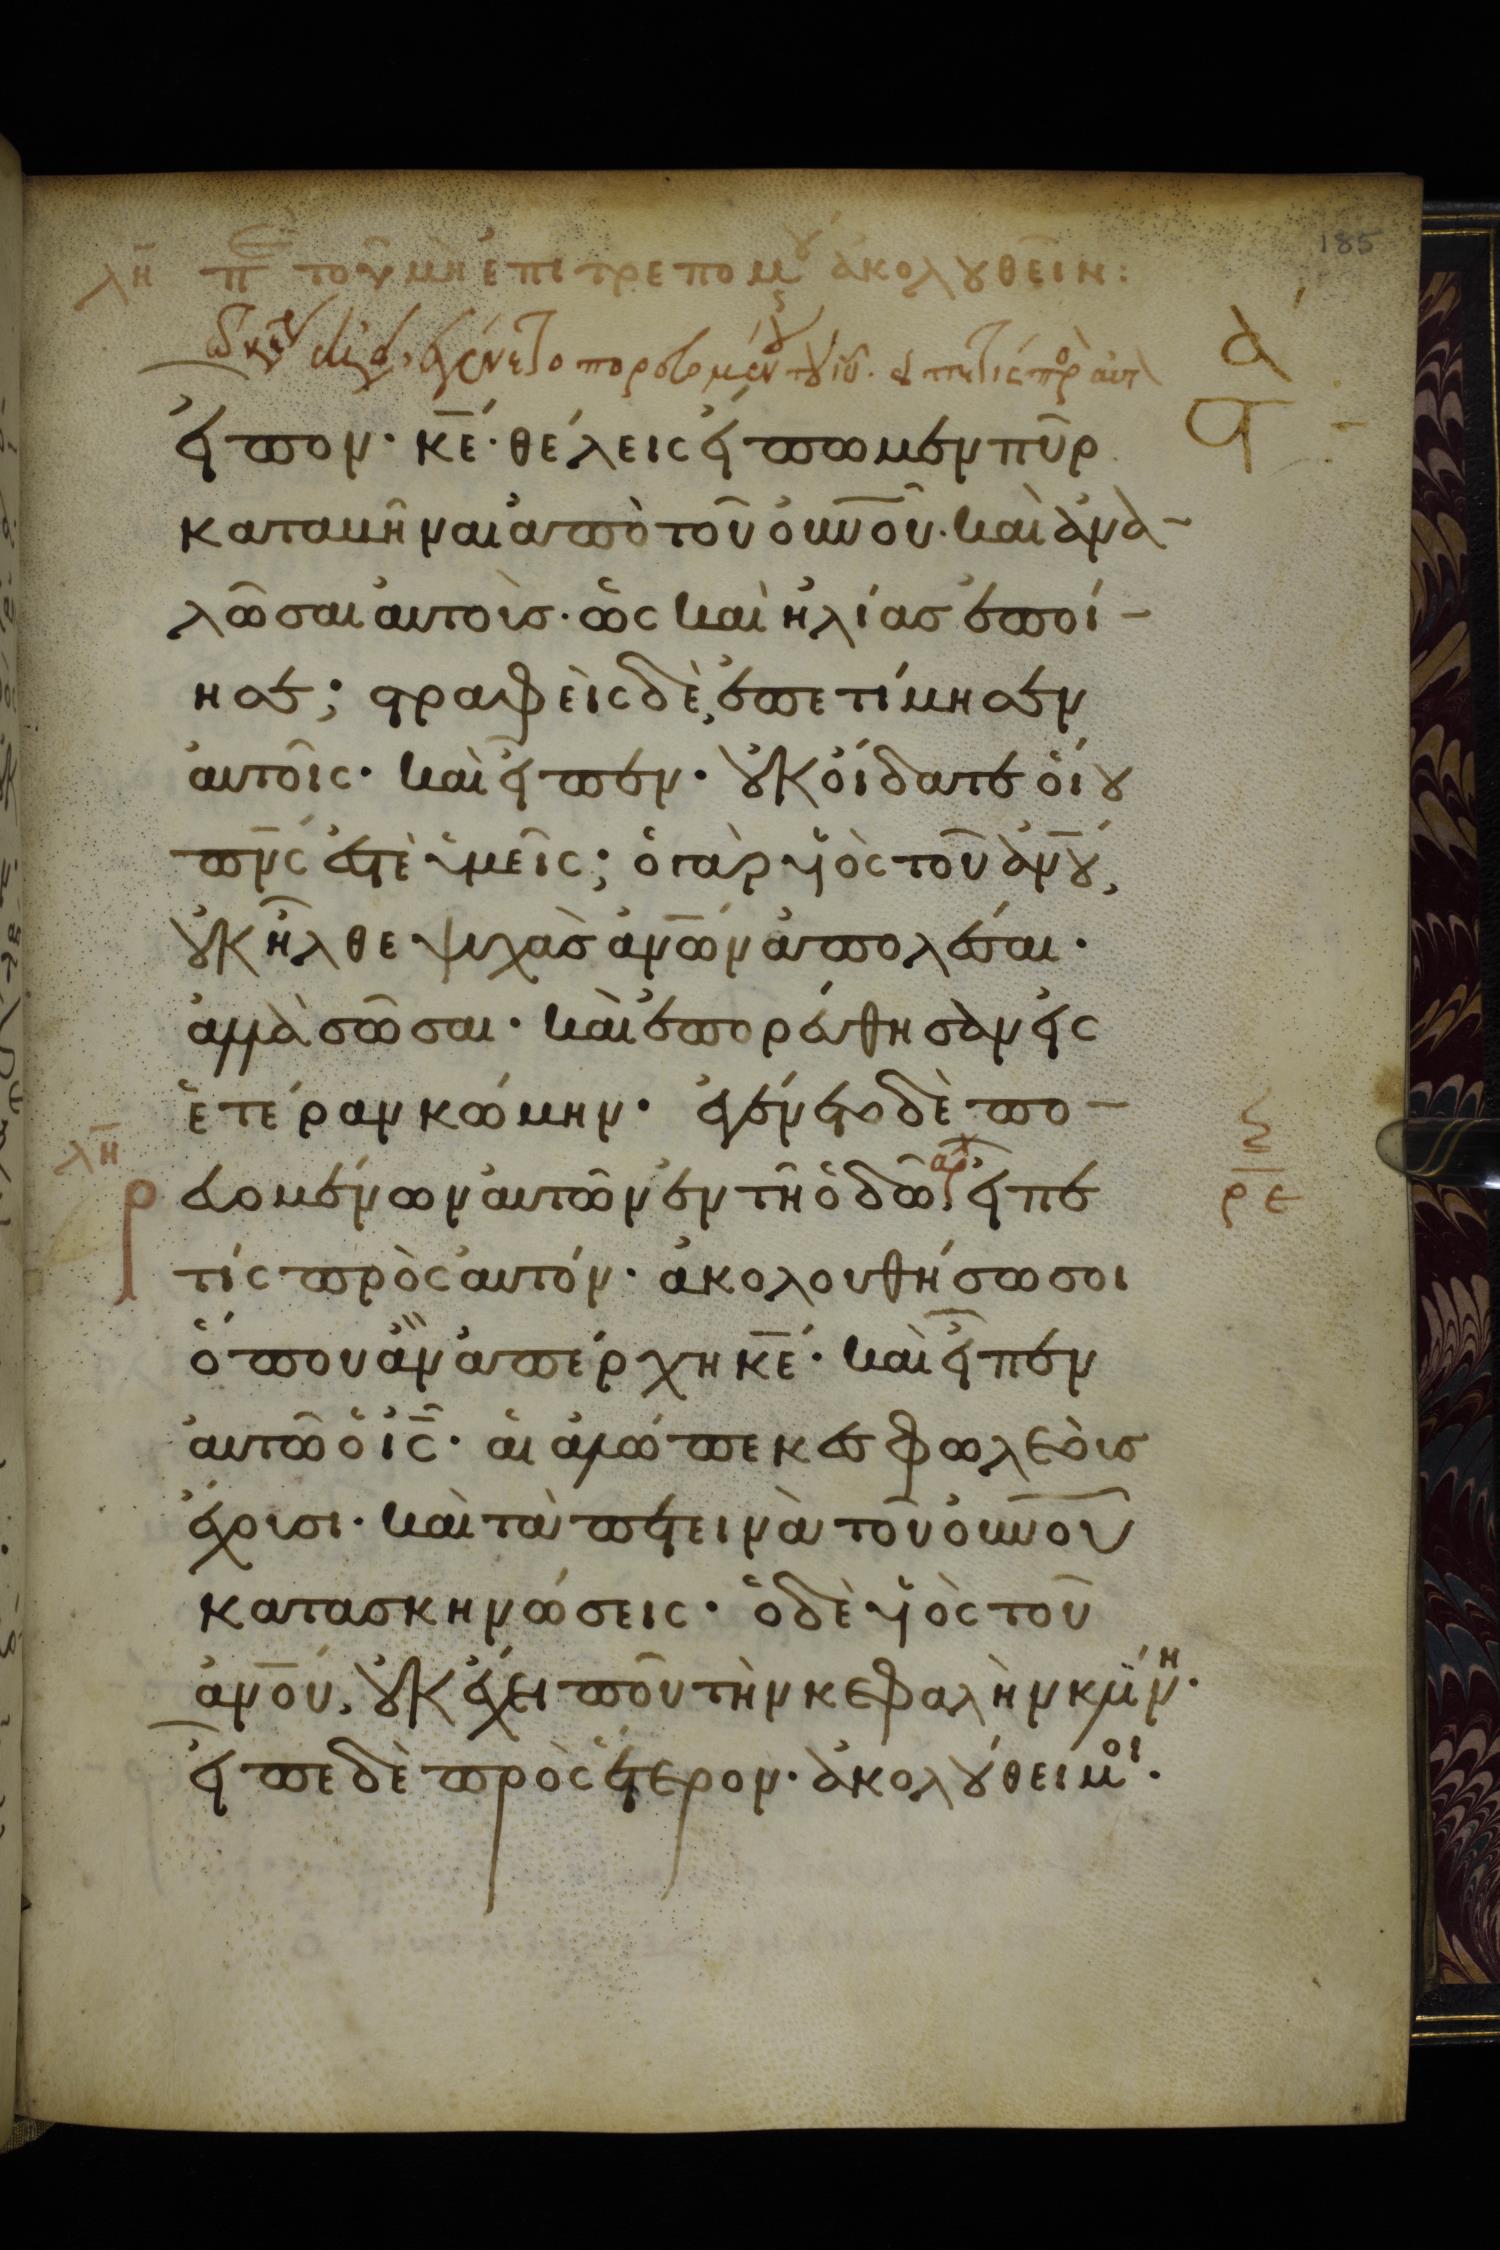 185
λη̄ π̄ε τοῦ μὴ ἐπιτρεπομ´ου ἀκολουθεῖν:
ἐγένετο πορευομένου τοῦ ιῡ. εἶπέ τις πρὸ αὐτ
ἆ
εἶπον· κ̄ε· θέλεις εἴπωμεν πῦρ
καταβῆναι ἀπὸ τοῦ οὐ̅ν̅οῦ· καὶ ἀνα-
λῶσαι αὐτοὺς· ὡς καὶ ἠλίας ἐποί-
ησε; στραφεὶς δὲ, ἐπετίμησεν
αὐτοῖς· καὶ εἶπεν· οὐκ οἴδατε οἵου
π̅ν̅ς ἐστὲ ὑμεῖς; ὁ γὰρ υἱὸς τοῦ ἀ̅ν̅ου,
οὐκ ἦλθε ψυχὰς ἀ̅ν̅ων ἀπολέσαι·
ἀλλὰ σῶσαι· καὶ ἐπορεύθησαν εἰς
ἑτέραν κώμην· ἐγένετο δὲ πο-
λη̄
ρευομένων αὐτῶν ἐν τῇ ὁδῶ, εἶπέ
αρχ
ξ
ρε
τίς πρὸς αὐτόν· ἀκολουθήσω σοι
ὅπου ἂν ἀπέρχη κ̅ε· καὶ εἶπεν
αὐτῶ ὁ ι̅ς̅· αἱ ἀλώπεκες φωλεοὺς
ἔχουσι· καὶ τὰ πετεινὰ τοῦ οὐ̅ν̅οῦ
κατασκηνώσεις· ὁ δὲ υἱὸς τοῦ
ἀ̅ν̅οῦ, οὐκ ἔχει ποῦ τὴν κεφαλὴν κλίνη·
εἶπε δὲ πρὸς ἕτερον· ἀκολούθει μοι·